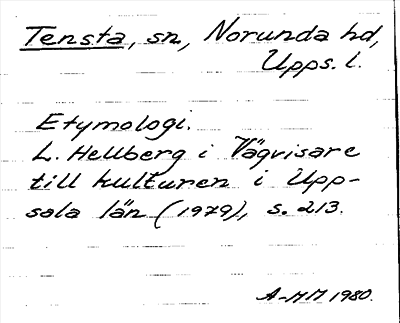 Tensta, sn, Norunda hd,
Upps. l.
Etymologi.
L. Hellberg i Vägvisare
till kulturen i Upp-
sala län (1979), s. 213.
A-MM 1980.